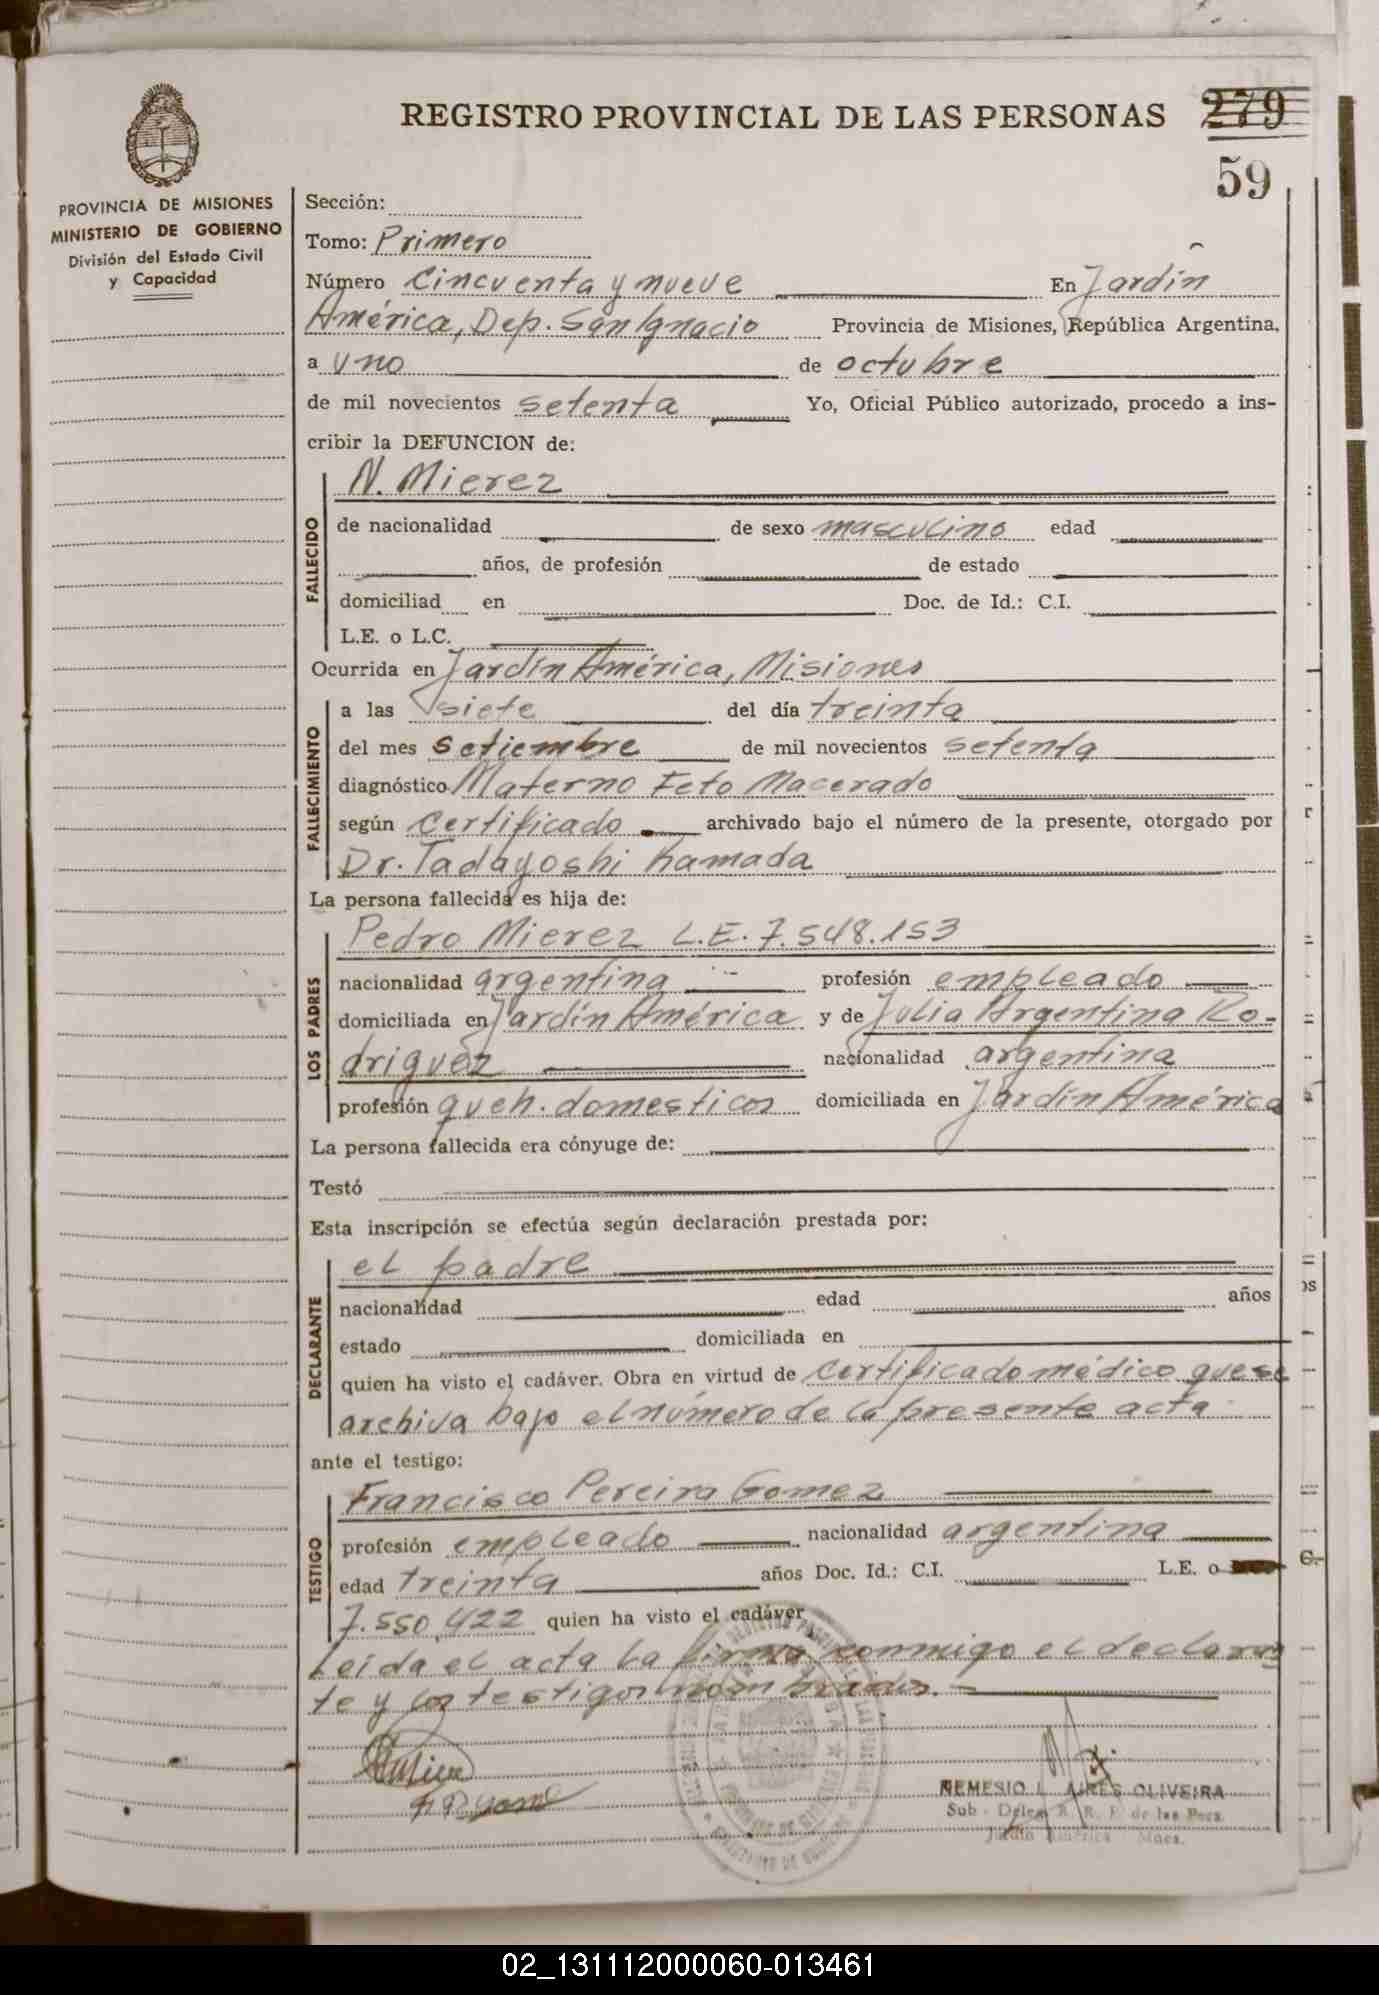 REGISTRO PROVINCIAL DE LAS PERSONAS 279
59
PROVINCIA DE MISIONES
MINISTERIO DE GOBIERNO
División del Estado Civil
y Capacidad
Sección:
Tomo: Primero
Número Cincuenta y nueve En Jardín
América, Dep. San Ignacio Provincia de Misiones, República Argentina,
a uno de octubre
de mil novecientos setenta Yo, Oficial Público autorizado, procedo a ins-
cribir la DEFUNCION de:
FALLECIDO
N. Mierez
de nacionalidad de sexo masculino edad
años, de profesión de estado
domiciliad en Doc. de Id.: C.I.
L.E. o L.C.
Ocurrida en Jardín América, Misiones
FALLECIMIENTO
a las siete del día treinta
del mes setiembre de mil novecientos setenta
diagnóstico Materno Feto Macerado
según certificado archivado bajo el número de la presente, otorgado por
Dr. Tadayoshi Kamada
La persona fallecida es hija de:
LOS PADRES
Pedro Mierez L.E. 7.548.153
nacionalidad argentina profesión empleado
domiciliada en Jardín América y de Julia Argentina Ro-
driguez nacionalidad argentina
profesión queh. domesticos domiciliada en Jardín América
La persona fallecida era cónyuge de:
Testó
Esta inscripción se efectúa según declaración prestada por:
DECLARANTE
el padre
nacionalidad edad años
estado domiciliada en
quien ha visto el cadáver. Obra en virtud de certificado médico que se
archiva bajo el número de la presente acta
ante el testigo:
TESTIGO
Francisco Pereira Gomez
profesión empleado nacionalidad argentina
edad treinta años Doc. Id.: C.I. L.E. o
7.550.422 quien ha visto el cadáver
Leída el acta la firma conmigo el declaran
te y los testigos nombrados.
NEMESIO L. AIRES OLIVEIRA
Sub - Deleg. R. R. P. de las Pers.
Jardín América - Mnes.
02_131112000060-013461